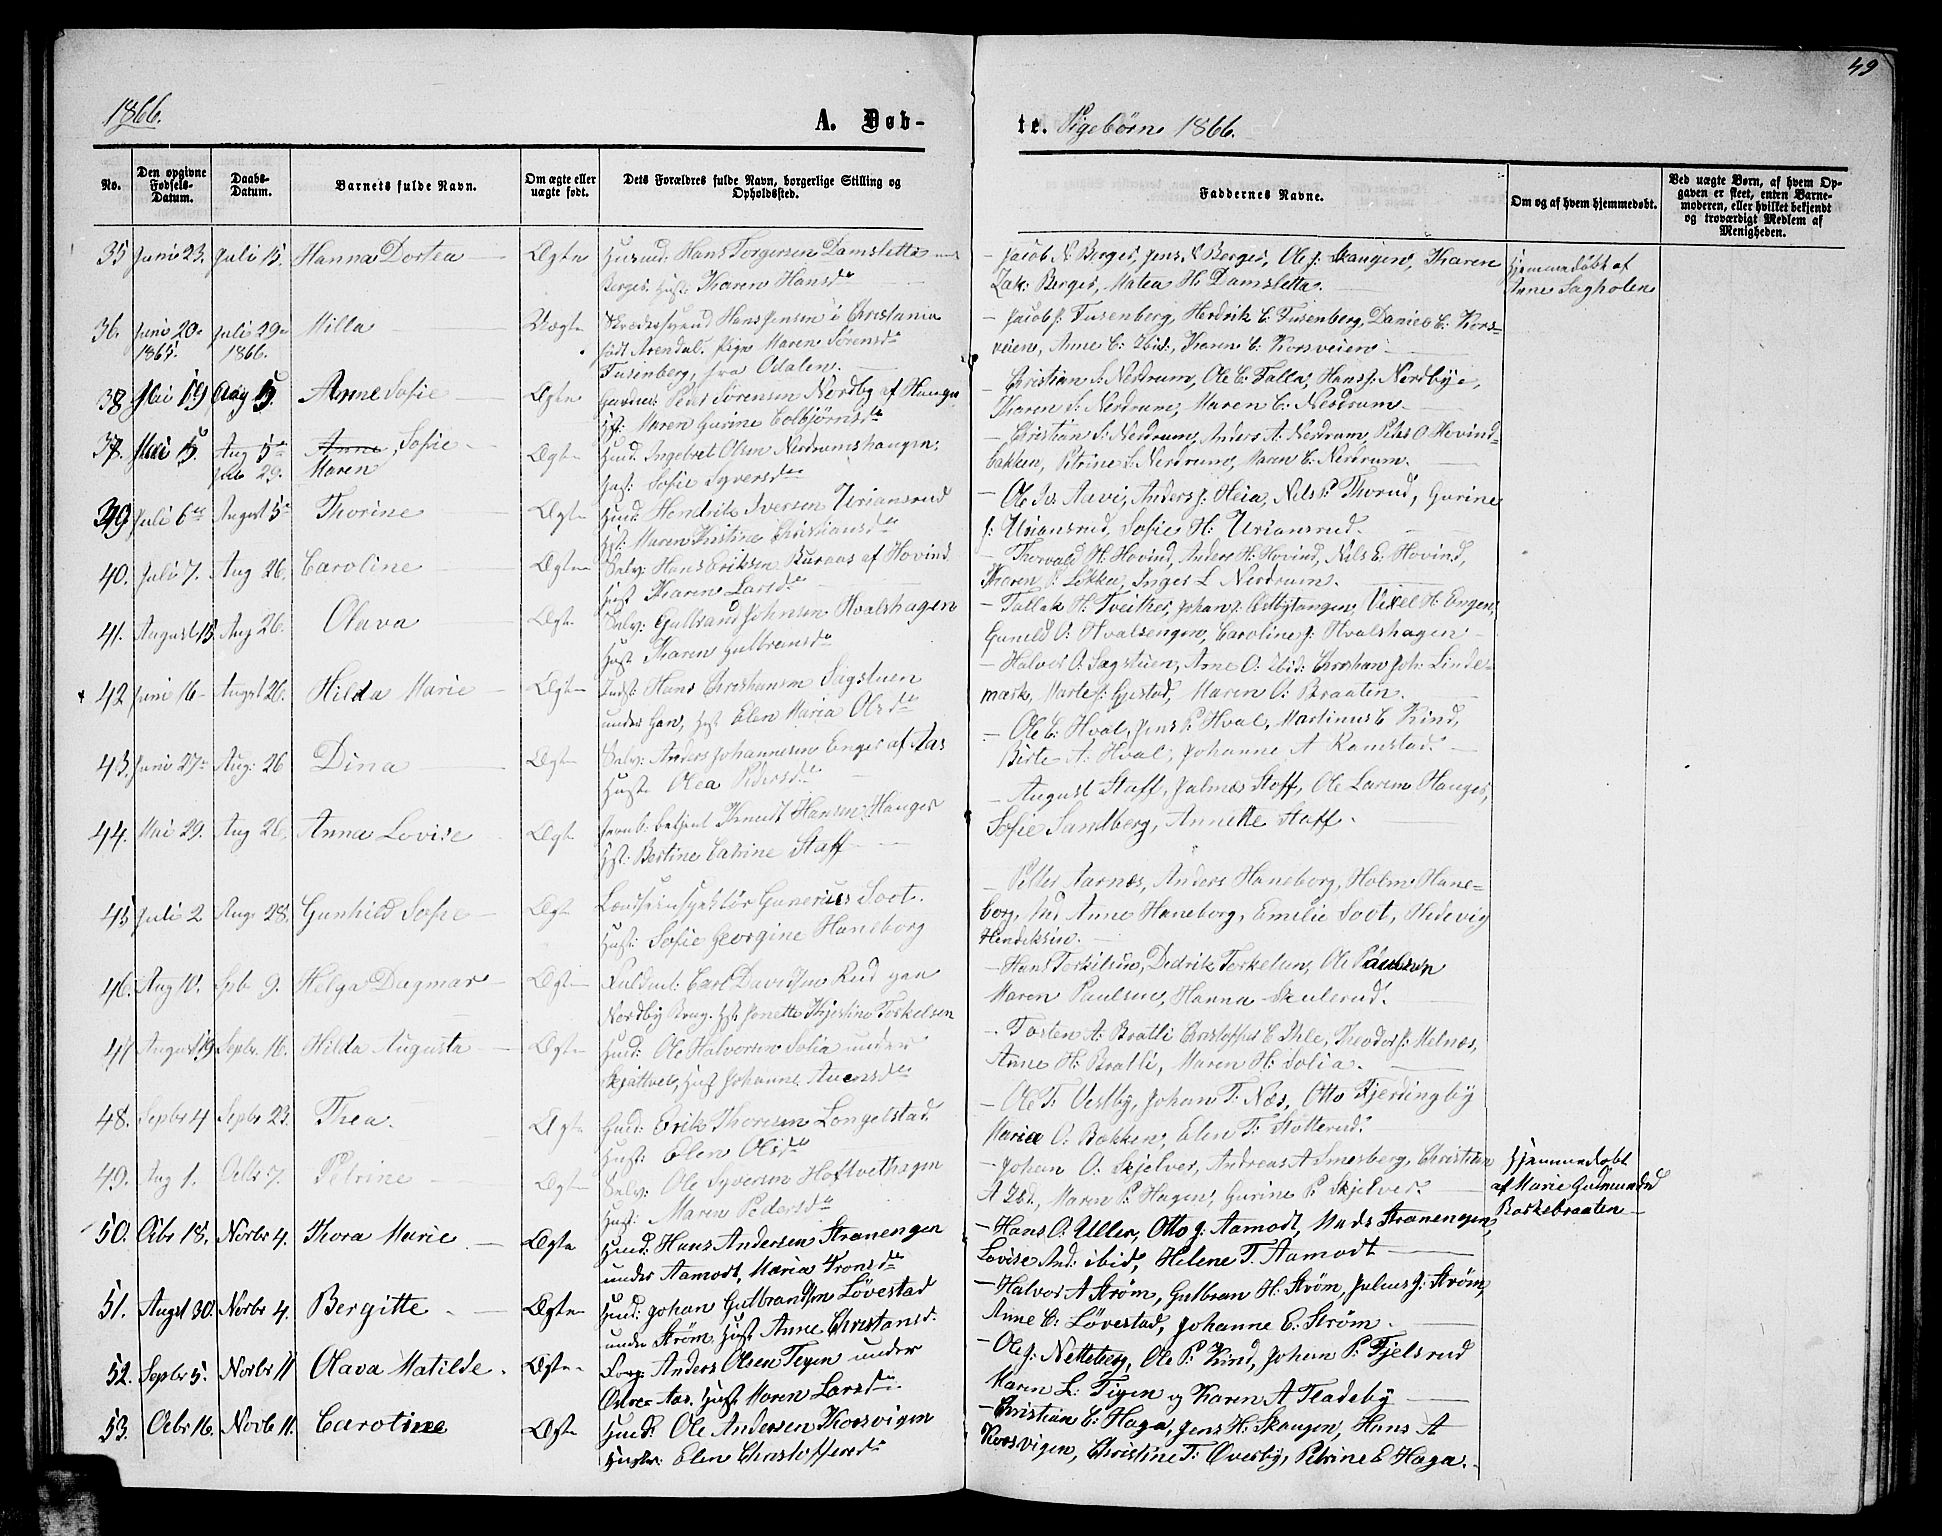 49
1866.
A. Døb-
te. Pigebørn 1866.
No.
Den opgivne Fødsels-Datum.
Daabs-Datum.
Barnets fulde Navn.
Om ægte eller uægte født.
Dets Forældres fulde Navn, borgerlige Stilling og Opholdssted.
Faddernes Navne.
Om og af hvem hjemmedøbt.
Ved uægte Børn, af hvem Opgaven er skeet, enten Barnemoderen, eller hvilket bekjendt og troværdigt Medlem af Menigheden.
35 Juni 23. Juli 15. Hanna Dortea Ægte Husmd: Hans Torgersen Damsletta
Berger Hust: Karen Hansdr
Jacob N Berger, Jens N Berger, Ole J: Skaugen, Karen
Zak: Berger, Matea H: Damsletta.
Hjemmedøbt af
Anne Sagholen
36. Juni 20. 1865. Juli 29. 1866. Milla Uægte Skrædersvend Hans Jensen i Christiania
født Arendal. Pige Maren Sørensdr
Tusenberg, fra Odalen.
Jacob J: Tusenberg, Hendrik C: Tusenberg, Daniel C: Kors-
veien, Anne C: Ibid:, Karen C: Korsveien
38 Mai 19 Aug 5. Anne Sofie Ægte Peder Sørensen Nordby af Hauger
Hst: Maren Gurine Colbjørnsdr
Christian S: Nerdrum, Ole C: Falla, Hans J: Nordbye,
Karen S: Nerdrum, Maren C: Nerdrum
37. Mai 15. Aug 5 Anne, Sofie Ægte Husmd. Ingebret Olsen Nerdrumshaugen,
29. Maren
Hust: Sofie Syversdr
Christian S: Nerdrum, Anders A: Nerdrum, Peter O Hovind-
bakken, Petrine S: Nerdrum, Maren C: Nerdrum.
39 Juli 6 August 5 Thorine Ægte Husmd: Hendrik Iversen Uriansrud
Hst: Maren Kristine Christiansdr
Ole Iv. Aavi, Anders J: Heia, Nils P. Thorud, Gurine
J: Uriansrud, Sofie H: Uriansrud.
40. Juli 7. Aug 26. Caroline Ægte Selv: Hans Eriksen Kuraas af Hovind
Hust Karen Larsdr
Thorvald H: Hovind, Anders H: Hovind, Nils E: Hovind,
Karen P: Løkka, Inger L Nerdrum.
41. August 13. Aug 26. Olava Ægte Selv: Gulbrand Johnsen Hvalshagen
Hust Karen Gulbransdr
Tallak H: Tveither, Johan J: Østbytangen, Vixel H: Engen,
Gunild O: Hvalsengen, Caroline J: Hvalshagen
42 Juni 16 August 26. Hilda Marie Ægte Indst: Hans Christiansen Sagstuen
under Gan, Hst Elen Maria Olsdr
Halvor O: Sagstuen, Arne O: ibid: Christian Joh: Linde-
mark, Marte J: Gjestad, Maren O: Braaten.
43. Juni 27 Aug: 26 Dina Ægte Selv: Anders Johannesen Enger af Aas
Hust: Olea Pedersdr
Ole C: Hval, Jens P. Hval, Martinus C Kind,
Birte A: Hval, Johanne A Ramstad.
44. Mai 29. Aug 26. Anna Lovise Ægte Jernb: betjent Knut Hansen Hauger
Hst: Bertine Catrine Staff
August Staff, Jalmar Staff, Ole Larsen Hauger,
Sofie Sandberg, Annette Staff.
45 Juli 2 Aug 28. Gunhild Sofie Ægte Gunerius Soot.
Hust: Sofie Georgine Haneborg
Petter Aarnæs, Anders Haneborg, Holm Hane-
borg, Anne Haneborg, Emilie Soot, Hedevig
Hendeksen.
46. Aug 10. Spbr 9. Helga Dagmar Ægte Fuldm: Carl Davidsen Rud
Nordby Brug. Hst: Jonette Kjestine Torkelsen
Hans Torkilsen, Dedrik Torkelsen, Ole Paulsen
Maren Paulsen, Hanna Skulerud.
47 August 19 Sepbr. 16. Hilda Augusta Ægte Husmd: Ole Halvorsen Solia under
Skjatvet, Hust Johanne Auensdr
Torsten A: Bratli Christoffer C Ihle, Theodor J: Melnæs,
Anne H: Bratli, Maren H: Solia.
48. Sepbr 4 Sepbr 23. Thea. Ægte Husmd: Erik Thoresen Longelstad
Hust: Elen Olsdr
Ole T: Vestby, Johan T: Næs, Otto Fjerdingby
Maria O: Bakken, Elen T: Slotterud.
49. Aug 1. Octbr 7. Petrine Ægte Selv: Ole Syversen Hoftvethagen
Hust: Maren Pedersdr
Johan O: Skjelver, Andreas A Smesberg, Christian
A Ibd, Maren P: Hagen, Gurine P: Skjelver.
Hjemmedøbt
af Marie Gulmunsdr
Borkebraaten
50. Octbr 18. Novbr 4. Thora Marie Ægte Husmd: Hans Andersen Stranengen
under Aamodt, Maria Tronsdr
Hans O: Ullern, Otto J: Aamodt, Mads Stranengen,
Lovise And: ibid, Helene T. Aamodt
51. Augst 30. Novbr 4. Bergitte Ægte Husmd: Johan Gulbrandsen Løvestad
under Strøm Hust Anne Christiansd:
Halvor A Strøm, Gulbran H: Strøm, Julius J: Strøm,
Anne C: Løvestad, Johanne E: Strøm.
52. Sepbr 5. Novbr 11 Olava Matilde. Ægte Forp: Anders Olsen Tegen under
Østre-Aas. Hust Maren Larsdr.
Ole J: Netteberg, Ole P: Kind, Johan P: Fjelsrud
Maren L: Tigen og Karen A Fladeby
53. Octbr 16. Novb 11. Caroline Ægte Husmd: Ole Andersen Korsvigen
Hustr: Elen Christoffersdr
Christian C: Haga, Jens H: Skaugen, Hans A
Korsvigen, Christine T: Overby, Petrine E Haga.